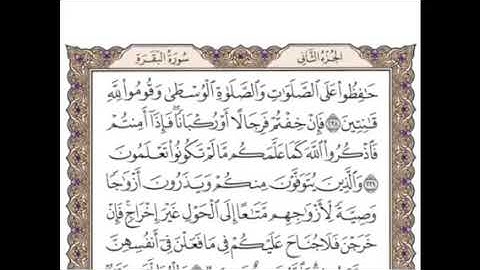 الجزء الثاني
سورة البقرة
حَٰفِظُوا۟ عَلَى ٱلصَّلَوَٰتِ وَٱلصَّلَوٰةِ ٱلْوُسْطَىٰ وَقُومُوا۟ لِلَّهِ
قَٰنِتِينَ ٢٣٨ فَإِنْ خِفْتُمْ فَرِجَالًا أَوْ رُكْبَانًا ۖ فَإِذَآ أَمِنتُمْ
فَٱذْكُرُوا۟ ٱللَّهَ كَمَا عَلَّمَكُم مَّا لَمْ تَكُونُوا۟ تَعْلَمُونَ
٢٣٩ وَٱلَّذِينَ يُتَوَفَّوْنَ مِنكُمْ وَيَذَرُونَ أَزْوَٰجًا
وَصِيَّةً لِّأَزْوَٰجِهِم مَّتَٰعًا إِلَى ٱلْحَوْلِ غَيْرَ إِخْرَاجٍ ۚ فَإِنْ
خَرَجْنَ فَلَا جُنَاحَ عَلَيْكُمْ فِى مَا فَعَلْنَ فِىٓ أَنفُسِهِنَّ